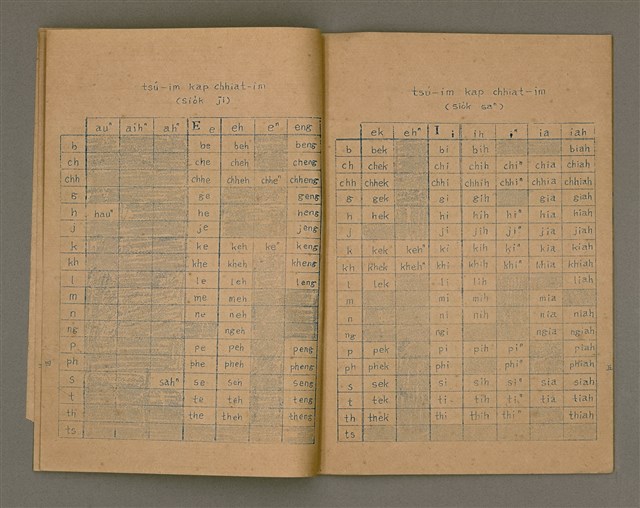 tsú-im kap chhiat-im
(siók jī)
auⁿ aihⁿ ahⁿ E e eh eⁿ eng
b be beh beng
ch che cheh cheng
chh chhe chheh chheⁿ chheng
g ge geng
h hauⁿ he heng
j je jeng
k ke keh keⁿ keng
kh khe kheh kheng
l le leh leng
m me meh
n ne neh
ng ngeh
p pe peh peng
ph phe pheh pheng
s sahⁿ se seh seng
t te teh teng
th the theh theng
ts
tsú-im kap chhiat-im
(siók saⁿ)
ek ehⁿ I i ih iⁿ ia iah
b bek bi bih biah
ch chek chi chih chiⁿ chia chiah
chh chhek chhi chhih chhiⁿ chhia chhiah
g gek gi gih gia giah
h hek hi hih hiⁿ hia hiah
j ji jih jiⁿ jia jiah
k kek kehⁿ ki kih kiⁿ kia kiah
kh khek khehⁿ khi khih khiⁿ khia khiah
l lek li lih liah
m mi mih mia
n ni nih nia niah
ng ngi ngia ngiah
p pek pi pih piⁿ piah
ph phek phi phiⁿ phiah
s sek si sih siⁿ sia siah
t tek ti tih tiⁿ tia tiah
th thek thi thih thiⁿ thiah
ts